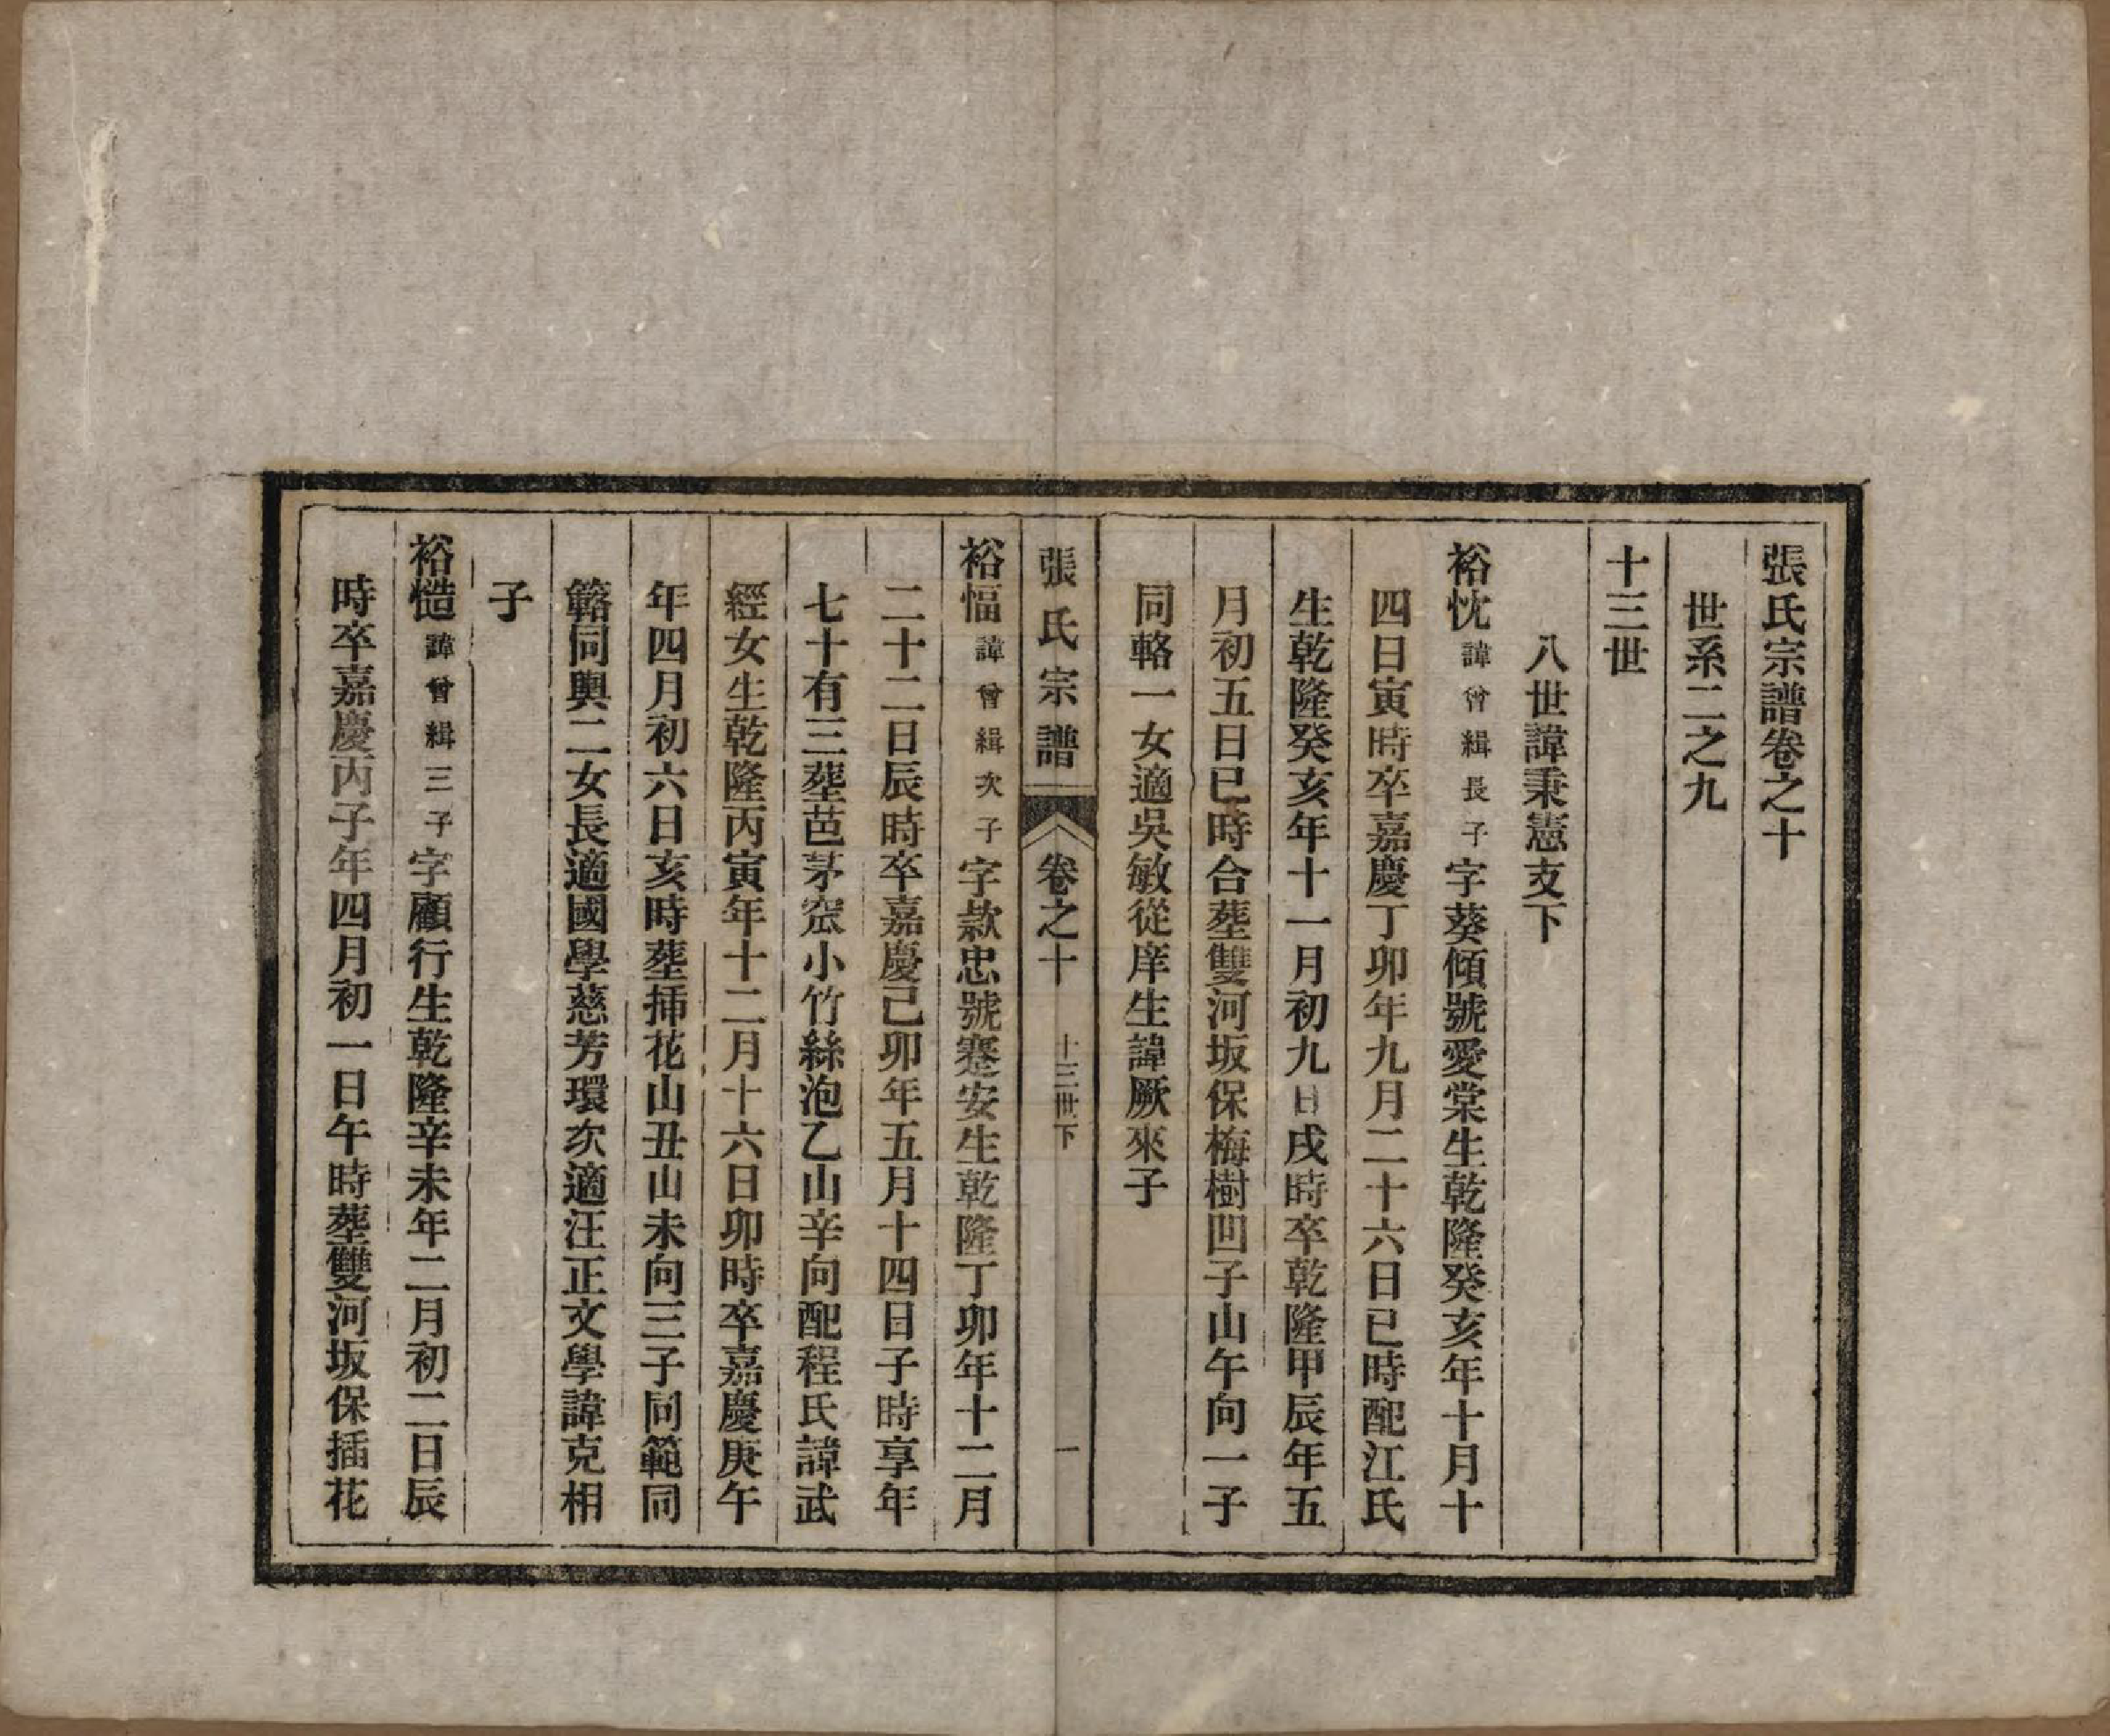 張氏宗譜卷之十
世系二之九
十三世
八世諱秉憲支下
裕忱諱曾緝長子字葵傾號愛棠生乾隆癸亥年十月十
四日寅時卒嘉慶丁卯年九月二十六日巳時配江氏
生乾隆癸亥年十一月初九日戌時卒乾隆甲辰年五
月初五日巳時合塟雙河坂保梅樹凹子山午向一子
同輅一女適吳敏從庠生諱厥來子
張氏宗譜
卷之十
十三世下
一
裕愊諱曾緝次子字欵忠號蹇安生乾隆丁卯年十二月
二十二日辰時卒嘉慶己卯年五月十四日子時享年
七十有三塟芭茅窊小竹絲泡乙山辛向配程氏諱武
經女生乾隆丙寅年十二月十六日卯時卒嘉慶庚午
年四月初六日亥時塟揷花山丑山未向三子同範同
簵同輿二女長適國學慈芳環次適汪正文學諱克相
子
裕慥諱曾緝三子字顧行生乾隆辛未年二月初二日辰
時卒嘉慶丙子年四月初一日午時塟雙河坂保插花